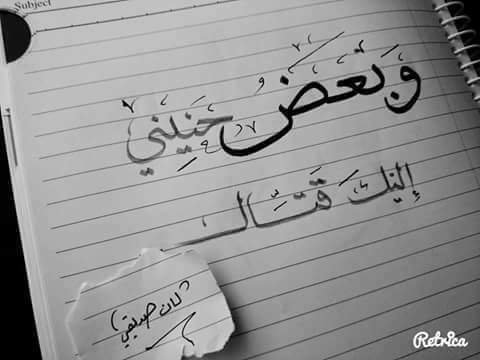 Subject
وَبَعَضُ حَنِيْنِي
إليك قَتَّال
صديقي)
Retrica